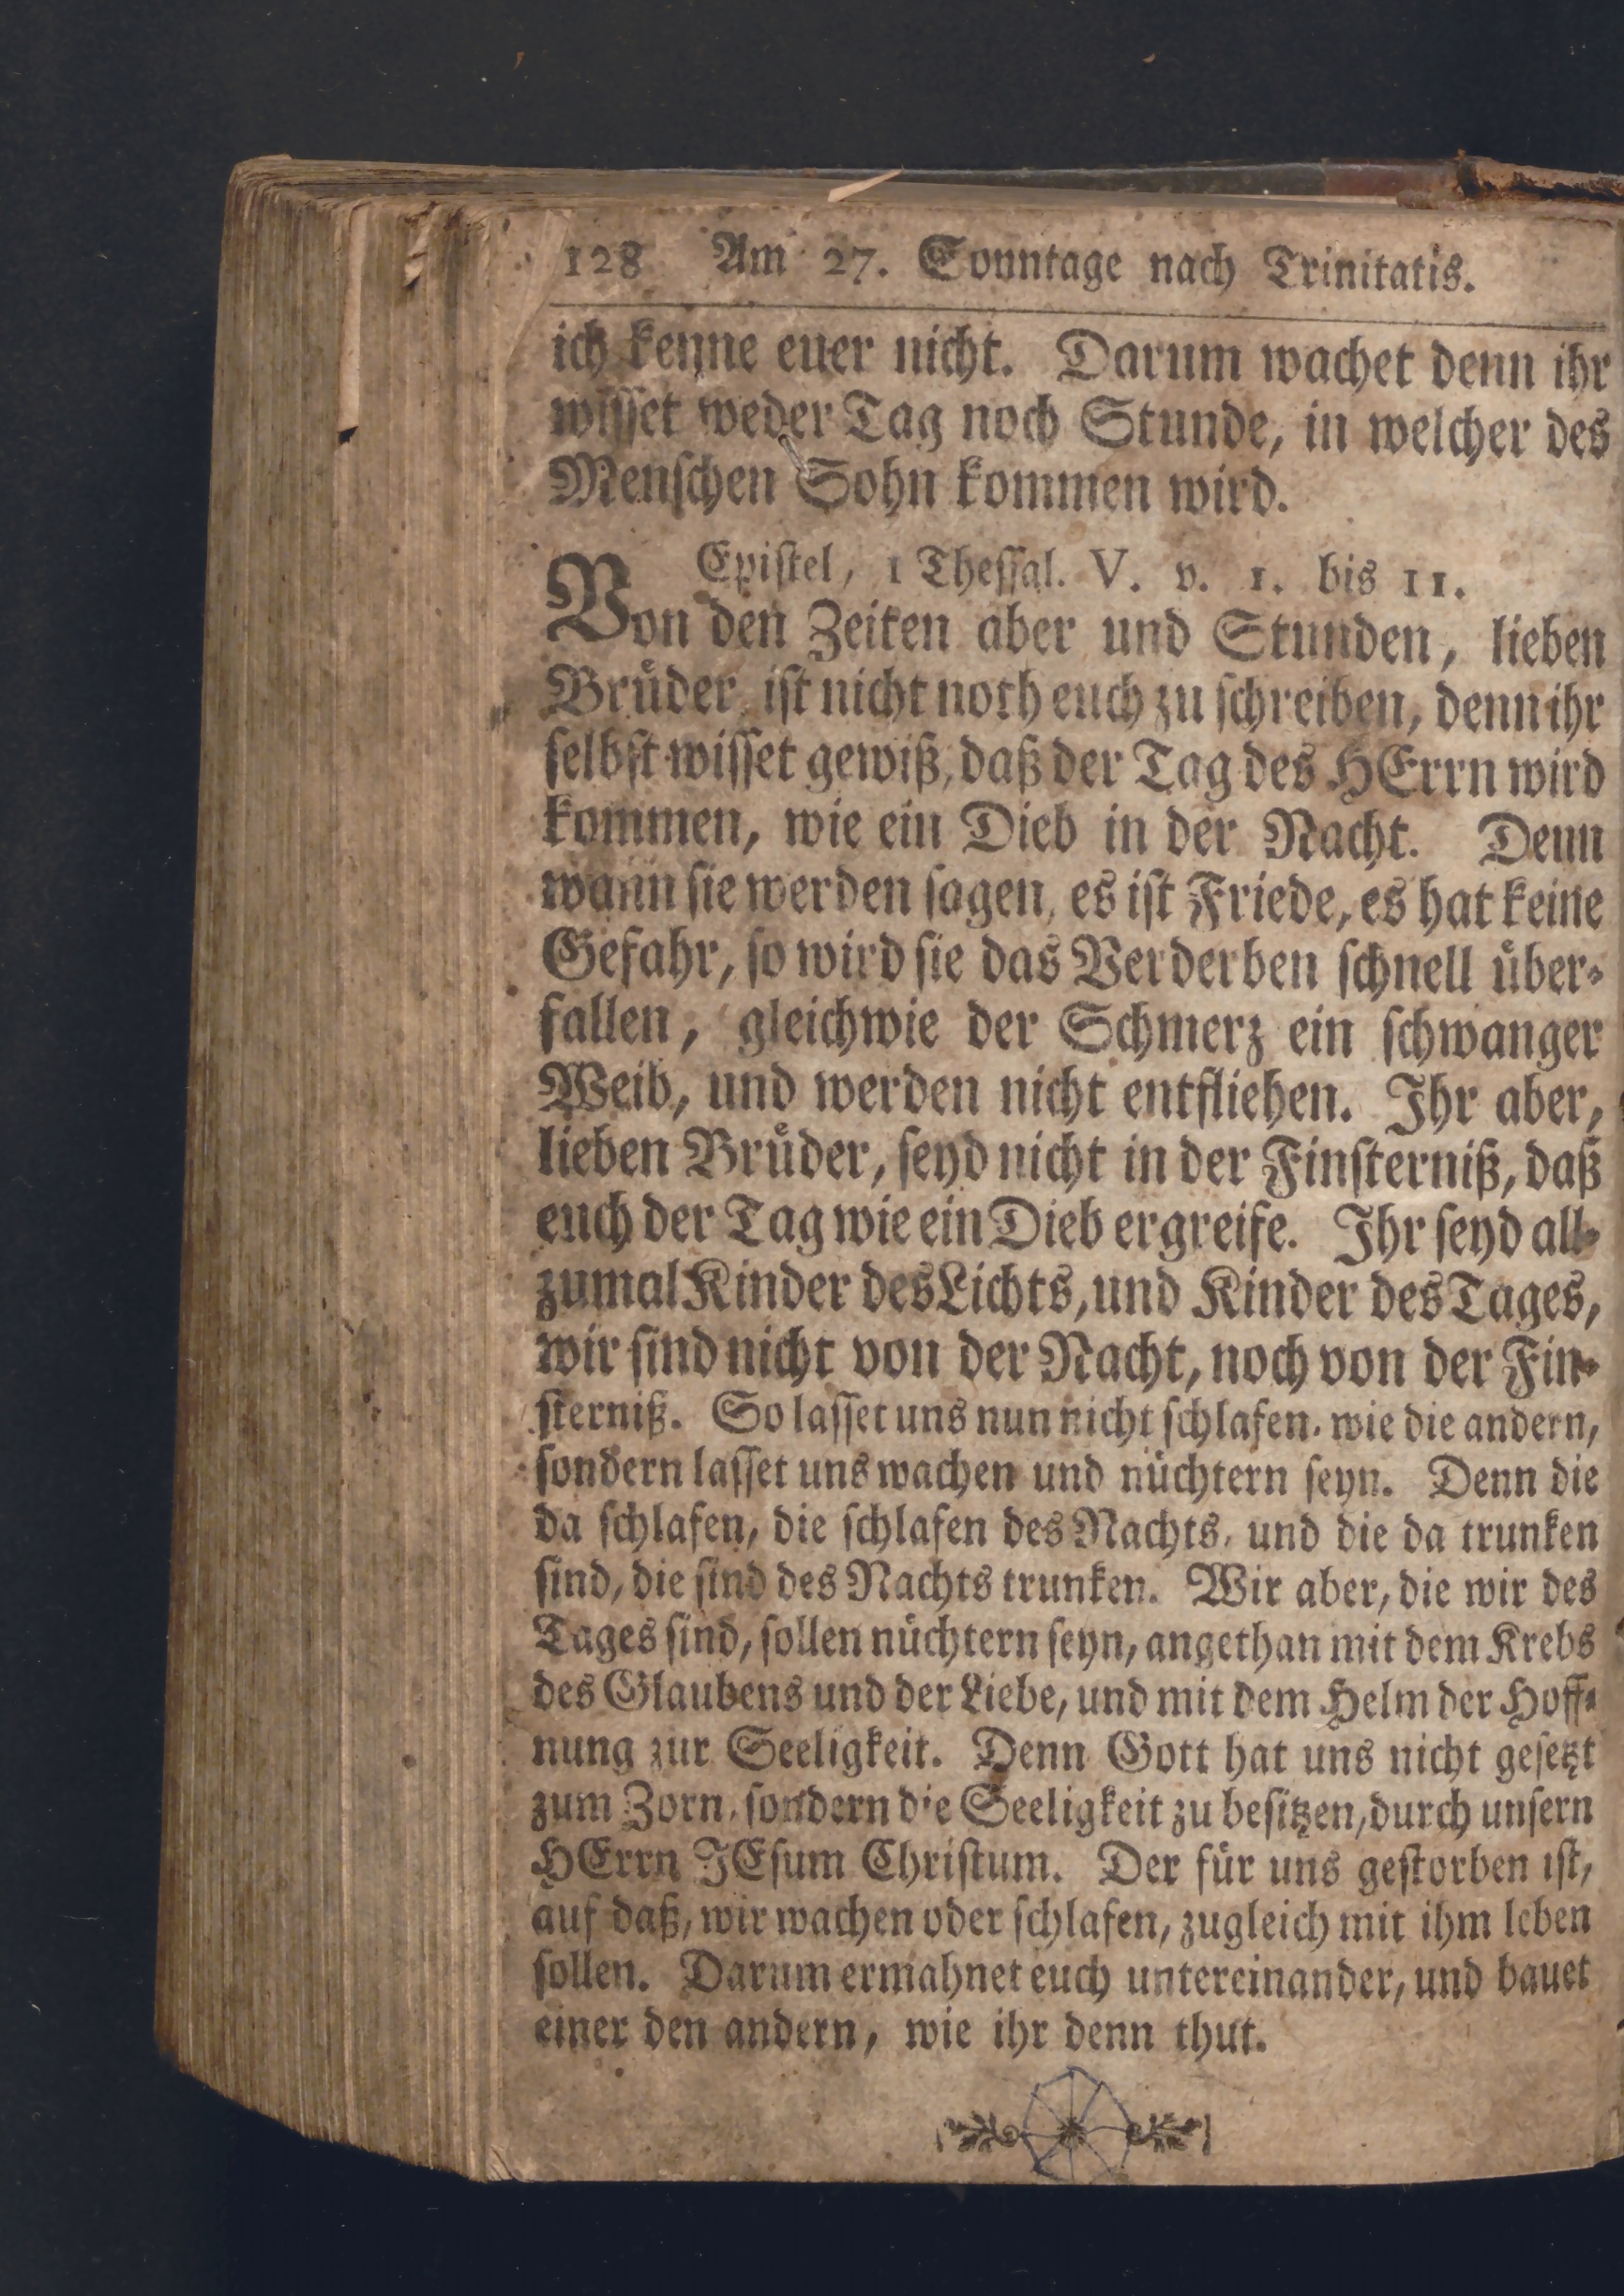 128 Am 27. Sonntage nach Trinitatis.
ich kenne euer nicht. Darum wachet denn ihr
wiſſet weder Tag noch Stunde, in welcher des
Menſchen Sohn kommen wird.
Epiſtel, 1 Theſſal. V. v. 1. bis 11.
Von den Zeiten aber und Stunden, lieben
Bruͤder, iſt nicht noth euch zu ſchreiben, denn ihr
ſelbſt wiſſet gewiß, daß der Tag des HErrn wird
kommen, wie ein Dieb in der Nacht. Denn
wann ſie werden ſagen, es iſt Friede, es hat keine
Gefahr, ſo wird ſie das Verderben ſchnell uͤber-
fallen, gleichwie der Schmerz ein ſchwanger
Weib, und werden nicht entfliehen. Ihr aber,
lieben Bruͤder, ſeyd nicht in der Finſterniß, daß
euch der Tag wie ein Dieb ergreife. Ihr ſeyd all-
zumal Kinder des Lichts, und Kinder des Tages,
wir ſind nicht von der Nacht, noch von der Fin-
ſterniß. So laſſet uns nun nicht ſchlafen, wie die andern,
ſondern laſſet uns wachen und nuͤchtern ſeyn. Denn die
da ſchlafen, die ſchlafen des Nachts, und die da trunken
ſind, die ſind des Nachts trunken. Wir aber, die wir des
Tages ſind, ſollen nuͤchtern ſeyn, angethan mit dem Krebs
des Glaubens und der Liebe, und mit dem Helm der Hoff-
nung zur Seeligkeit. Denn Gott hat uns nicht geſetzt
zum Zorn, ſondern die Seeligkeit zu beſitzen, durch unſern
HErrn JEſum Chriſtum. Der fuͤr uns geſtorben iſt,
auf daß, wir wachen oder ſchlafen, zugleich mit ihm leben
ſollen. Darum ermahnet euch untereinander, und bauet
einer den andern, wie ihr denn thut.